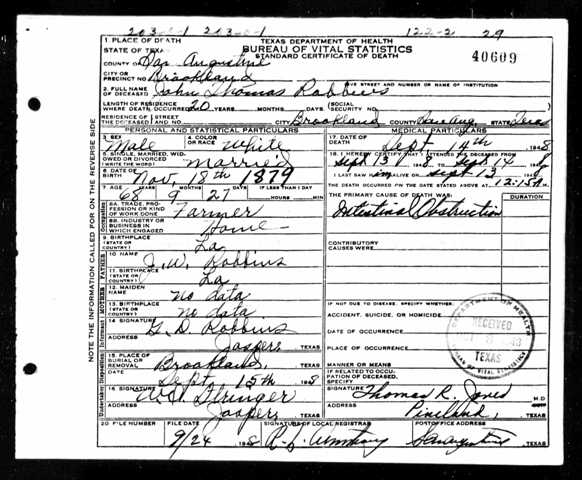 203-0-1 213-0-1 122-2 29
TEXAS DEPARTMENT OF HEALTH
BUREAU OF VITAL STATISTICS
STANDARD CERTIFICATE OF DEATH
40609
1 PLACE OF DEATH
STATE OF TEXAS
COUNTY OF San Augustine
CITY OR PRECINCT NO. Brookland
GIVE STREET AND NUMBER OR NAME OF INSTITUTION
2. FULL NAME OF DECEASED John Thomas Robbins
LENGTH OF RESIDENCE WHERE DEATH OCCURRED 20 YEARS MONTHS DAYS (SOCIAL SECURITY NO.)
RESIDENCE OF THE DECEASED STREET AND NO. CITY Brookland COUNTY San Aug. STATE Texas
PERSONAL AND STATISTICAL PARTICULARS
MEDICAL PARTICULARS
3. SEX Male
4. COLOR OR RACE White
5. SINGLE, MARRIED, WIDOWED OR DIVORCED (WRITE THE WORD) Married
6. DATE OF BIRTH Nov. 18th 1879
7. AGE YEARS MONTHS DAYS IF LESS THAN 1 DAY
68 9 27 HOURS MINUTES
8A. TRADE, PROFESSION OR KIND OF WORK DONE Farmer
8B. INDUSTRY OR BUSINESS IN WHICH ENGAGED Home
9. BIRTHPLACE (STATE OR COUNTRY) La
FATHER
10 NAME J. W. Robbins
11. BIRTHPLACE (STATE OR COUNTRY) La
MOTHER
12. MAIDEN NAME No data
13. BIRTHPLACE (STATE OR COUNTRY) No data
Informant
14 SIGNATURE G. D. Robbins
ADDRESS Jasper, TEXAS
Disposition
15 PLACE OF BURIAL OR REMOVAL Brookland, TEXAS
DATE Sept 15th 1948
Undertaker
16 SIGNATURE Stringer
ADDRESS Jasper, TEXAS
17. DATE OF DEATH Sept. 14th 1948
18. I HEREBY CERTIFY THAT I ATTENDED THE DECEASED FROM
Sept 13 1948 TO Sept 14 1948
I LAST SAW him ALIVE ON Sept 13 1948
THE DEATH OCCURRED ON THE DATE STATED ABOVE AT 12:15 A M.
THE PRIMARY CAUSE OF DEATH WAS: DURATION
Intestinal Obstruction
CONTRIBUTORY CAUSES WERE
IF NOT DUE TO DISEASE, SPECIFY WHETHER:
ACCIDENT, SUICIDE, OR HOMICIDE
DATE OF OCCURRENCE
PLACE OF OCCURRENCE
MANNER OR MEANS
IF RELATED TO OCCUPATION OF DECEASED, SPECIFY
SIGNATURE Thomas R. Jones M.D
ADDRESS Pineland, TEXAS
20 FILE NUMBER
FILE DATE 9/24 1948
SIGNATURE OF LOCAL REGISTRAR Armstrong
POSTOFFICE ADDRESS San Augustine TEXAS
RECEIVED
TEXAS
NOTE THE INFORMATION CALLED FOR ON THE REVERSE SIDE